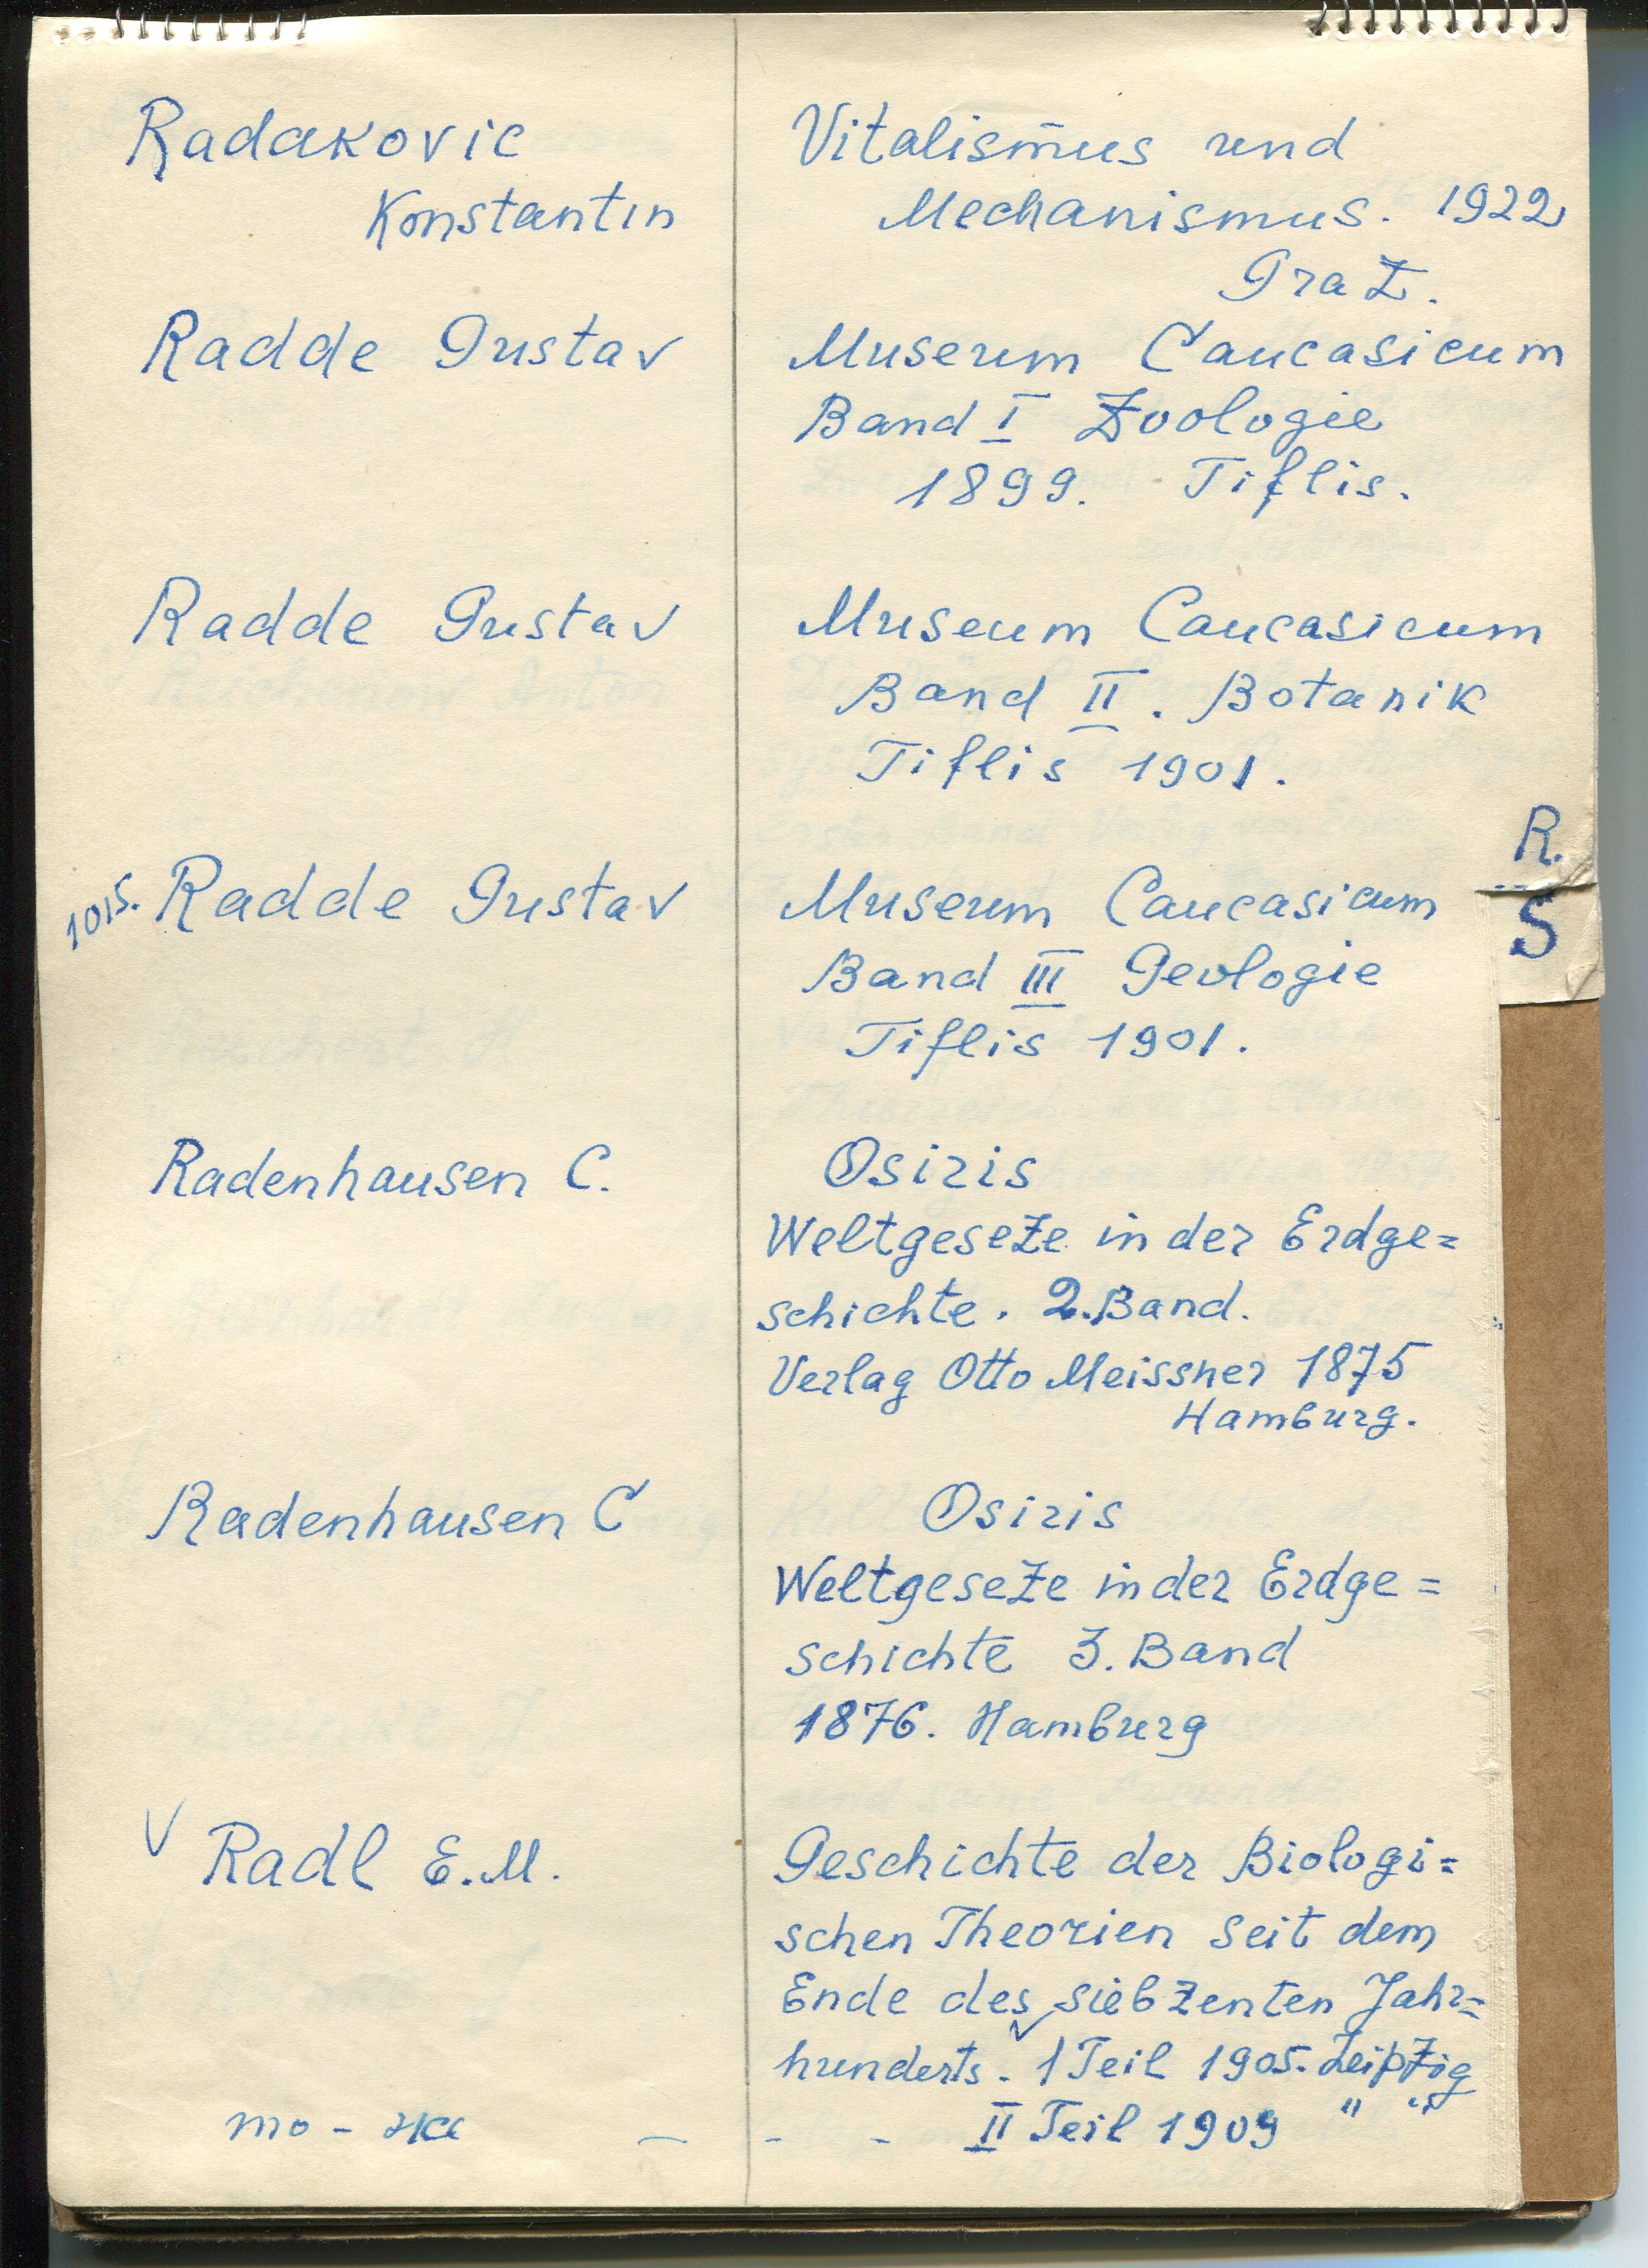 Radakovic
Konstantin
Vitalismus und
Mechanismus. 1922
Graz.
Radde Gustav
Museum Caucasicum
Band I Zoologie
1899. Tiflis.
Radde Gustav
Museum Caucasicum
Band II. Botanik
Tiflis 1901.
1015. Radde Gustav
Museum Caucasicum
Band III Geologie
Tiflis 1901.
R.
S
Radenhausen C.
Osiris
Weltgeseze in der Erdge=
schichte. 2. Band.
Verlag Otto Meissner 1875
Hamburg.
Radenhausen C
Osiris
Weltgeseze in der Erdge=
schichte 3. Band
1876. Hamburg
V Radl E. M.
Geschichte der Biologi=
schen Theorien seit dem
Ende des siebzenten Jahr=
hunderts. 1 Teil 1905. Leipzig
то-же - - - II Teil 1909 " "